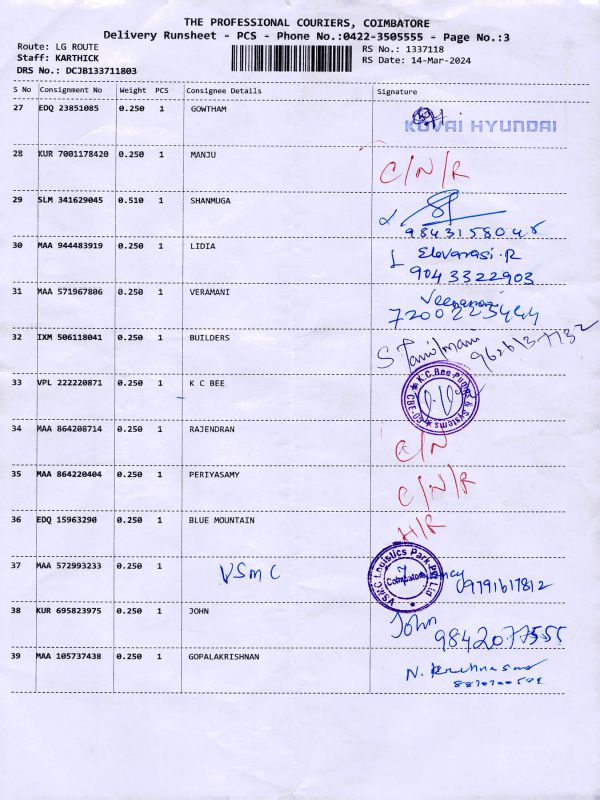 THE PROFESSIONAL COURIERS, COIMBATORE
Delivery Runsheet - PCS - Phone No.:0422-3505555 - Page No.:3
Route: LG ROUTE RS No.: 1337118
Staff: KARTHICK RS Date: 14-Mar-2024
DRS No.: DCJB133711803
S No Consignment No Weight PCS Consignee Details Signature
27 EDQ 23851085 0.250 1 GOWTHAM KOVAI HYUNDAI
28 KUR 7001178420 0.250 1 MANJU C/N/R
29 SLM 341629045 0.510 1 SHANMUGA
30 MAA 944483919 0.250 1 LIDIA Elavarasi.R
9043322903
31 MAA 571967806 0.250 1 VERAMANI Veeramani
32 IXM 506118041 0.250 1 BUILDERS
33 VPL 222220871 0.250 1 K C BEE K.C.Bee Pumps & Systems
34 MAA 864208714 0.250 1 RAJENDRAN C/N
35 MAA 864220404 0.250 1 PERIYASAMY C/N/R
36 EDQ 15963290 0.250 1 BLUE MOUNTAIN H/R
37 MAA 572993233 0.250 1 VSMC VSMC Logistics Park Pvt Ltd
Coimbatore
9791617812
38 KUR 695823975 0.250 1 JOHN John
9842077555
39 MAA 105737438 0.250 1 GOPALAKRISHNAN